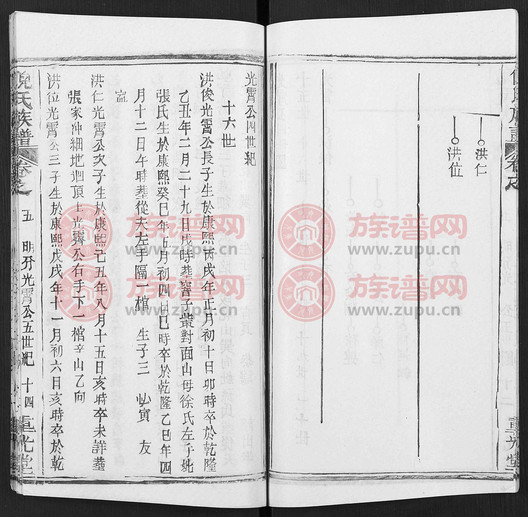 洪仁
洪位
光霄公四世紀
十六世
洪俊光霄公長子生於康熙丙戌年正月初十日卯時卒於乾隆
乙丑年二月二十九日戌時葬窖子叢對面山母徐氏左手
張氏生於康熙癸巳年五月初四日巳時卒於乾隆乙巳年四
月十二日午時葬從夫左手隔一棺 生子三 賓 友
洪仁光霄公次子生於康熙己丑年八月十五日亥時卒未詳葬
張家冲細地廻頂上光霄公右手下一棺辛山乙向
洪位光霄公三子生於康熙戊戌年十一月初六日亥時卒於乾
倪氏族譜
五 明升光霄公五世紀 十四 重光堂
族谱网
www.zupu.cn
族谱网
www.zupu.cn
族谱网
www.zupu.cn
族谱网
www.zupu.cn
族谱网
www.zupu.cn
族谱网
www.zupu.cn